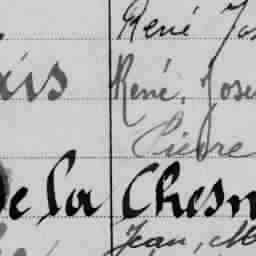 René Jos
is René, Jose
Pierre
De la Chesn
Jean, M